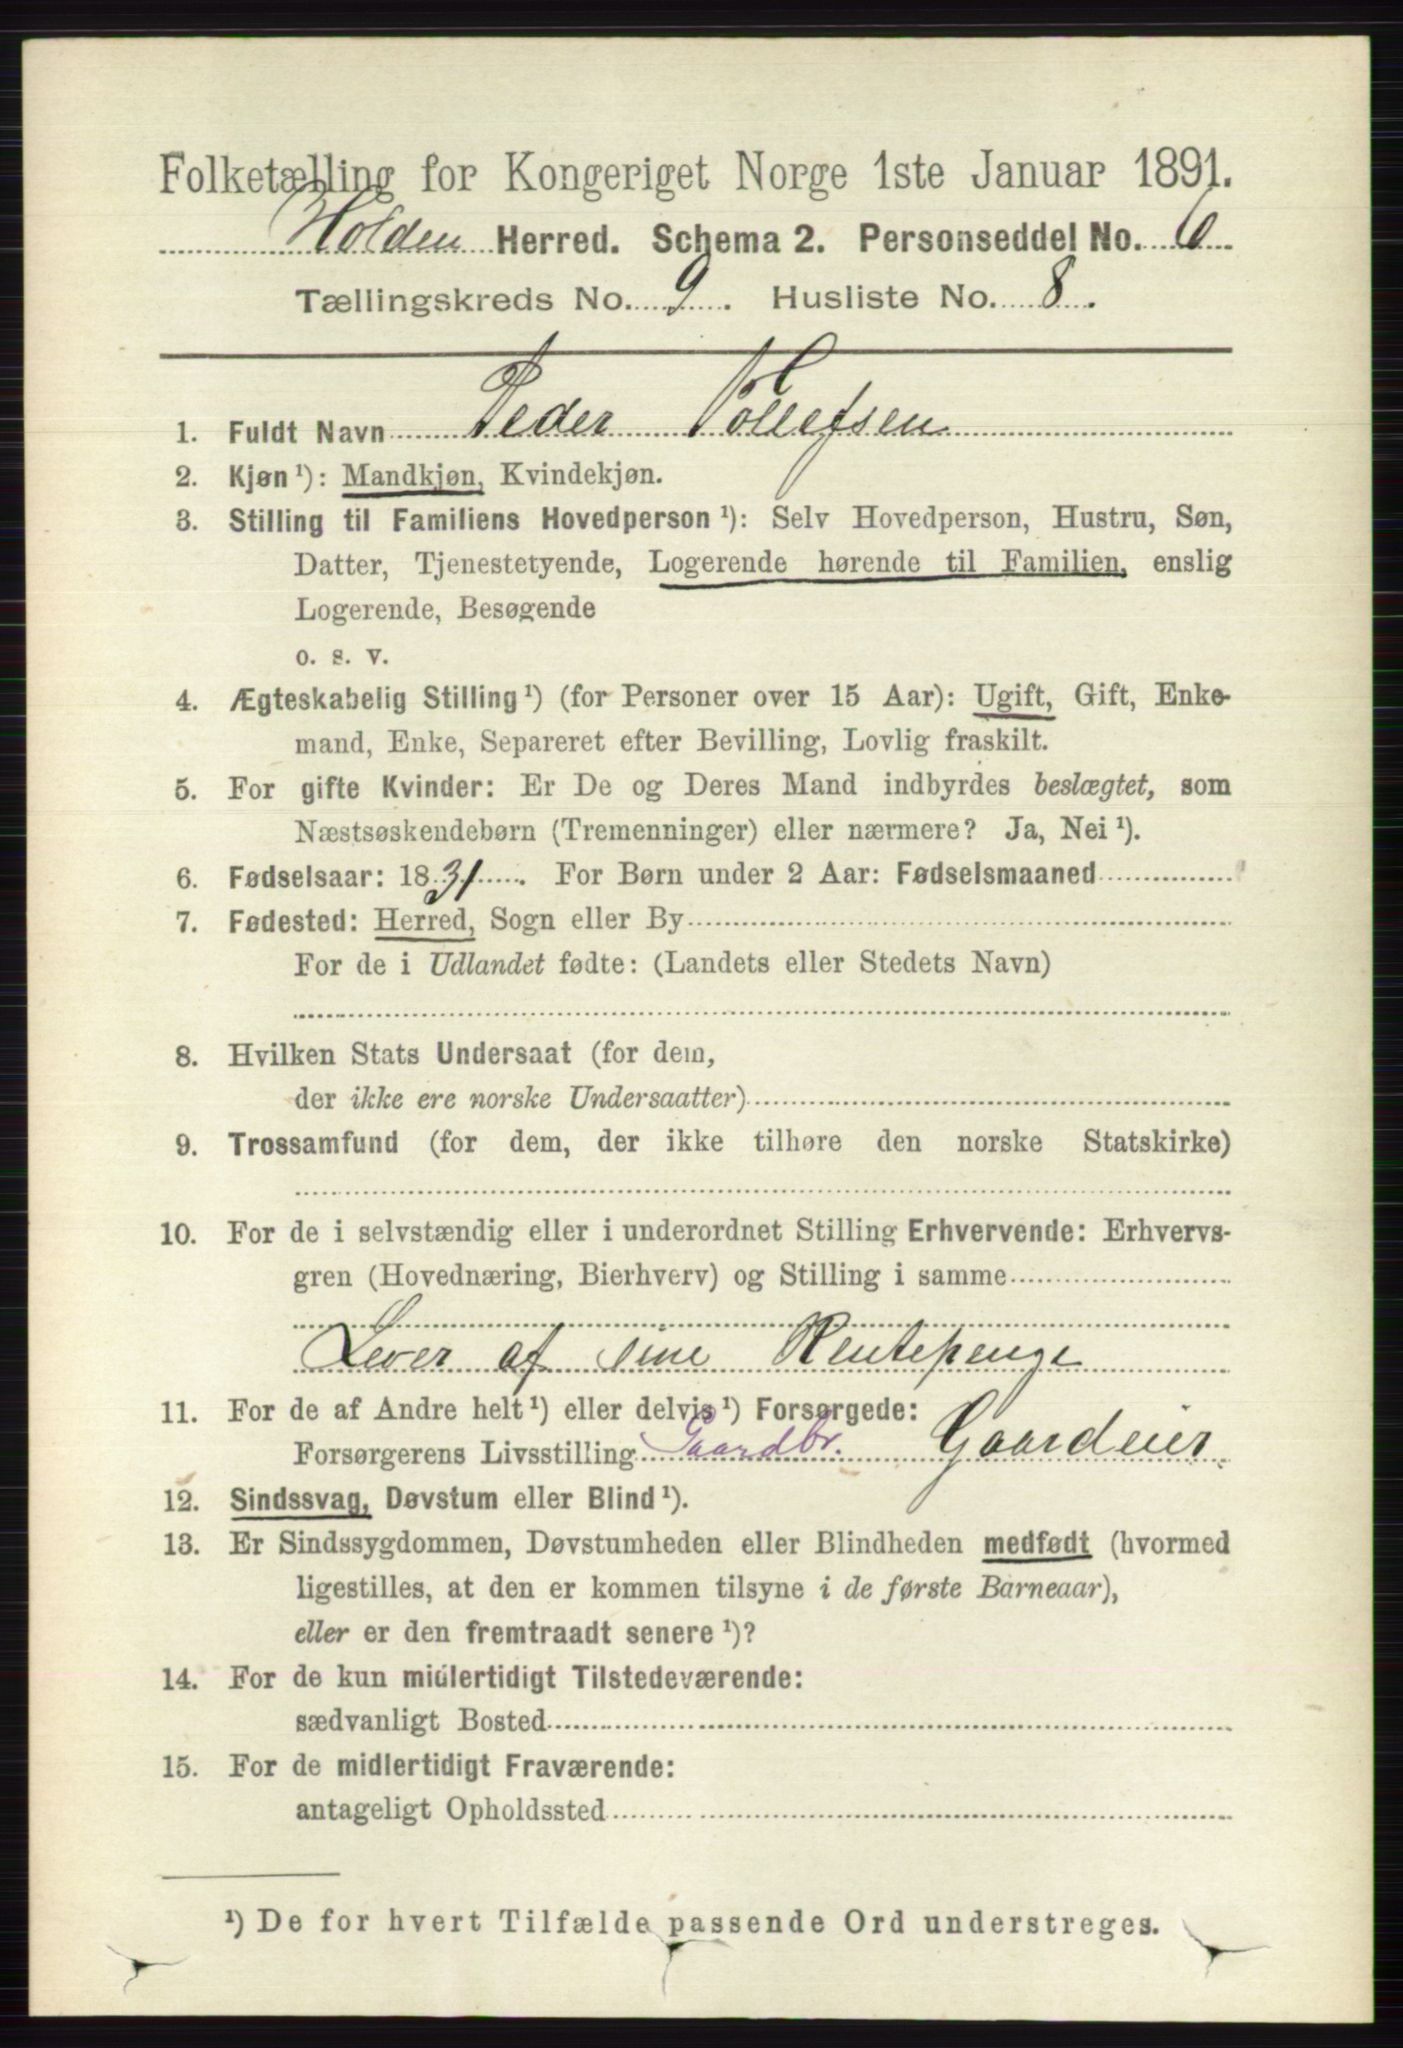 Folketælling for Kongeriget Norge 1ste Januar 1891.
Holden Herred. Schema 2. Personseddel No. 6
Tællingskreds No. 9. Husliste No. 8.
1. Fuldt Navn Peder Tollefsen
2. Kjøn ¹): Mandkjøn, Kvindekjøn.
3. Stilling til Familiens Hovedperson ¹): Selv Hovedperson, Hustru, Søn,
Datter, Tjenestetyende, Logerende hørende til Familien, enslig
Logerende, Besøgende
o. s. v.
4. Ægteskabelig Stilling ¹) (for Personer over 15 Aar): Ugift, Gift, Enke-
mand, Enke, Separeret efter Bevilling, Lovlig fraskilt.
5. For gifte Kvinder: Er De og Deres Mand indbyrdes beslægtet, som
Næstsøskendebørn (Tremenninger) eller nærmere? Ja, Nei ¹).
6. Fødselsaar: 1831. For Børn under 2 Aar: Fødselsmaaned
7. Fødested: Herred, Sogn eller By
For de i Udlandet fødte: (Landets eller Stedets Navn)
8. Hvilken Stats Undersaat (for dem,
der ikke ere norske Undersaatter)
9. Trossamfund (for dem, der ikke tilhøre den norske Statskirke)
10. For de i selvstændig eller i underordnet Stilling Erhvervende: Erhvervs-
gren (Hovednæring, Bierhverv) og Stilling i samme
Lever af sine Rentepenge
11. For de af Andre helt ¹) eller delvis ¹) Forsørgede:
Forsørgerens Livsstilling Gaardbr. Gaardeier
12. Sindssvag, Døvstum eller Blind ¹).
13. Er Sindssygdommen, Døvstumheden eller Blindheden medfødt (hvormed
ligestilles, at den er kommen tilsyne i de første Barneaar),
eller er den fremtraadt senere ¹)?
14. For de kun midlertidigt Tilstedeværende:
sædvanligt Bosted
15. For de midlertidigt Fraværende:
antageligt Opholdssted
¹) De for hvert Tilfælde passende Ord understreges.